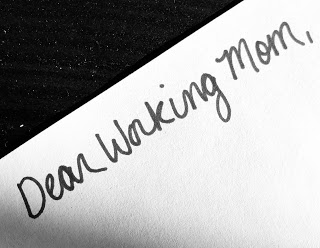 Dear Working Mom,